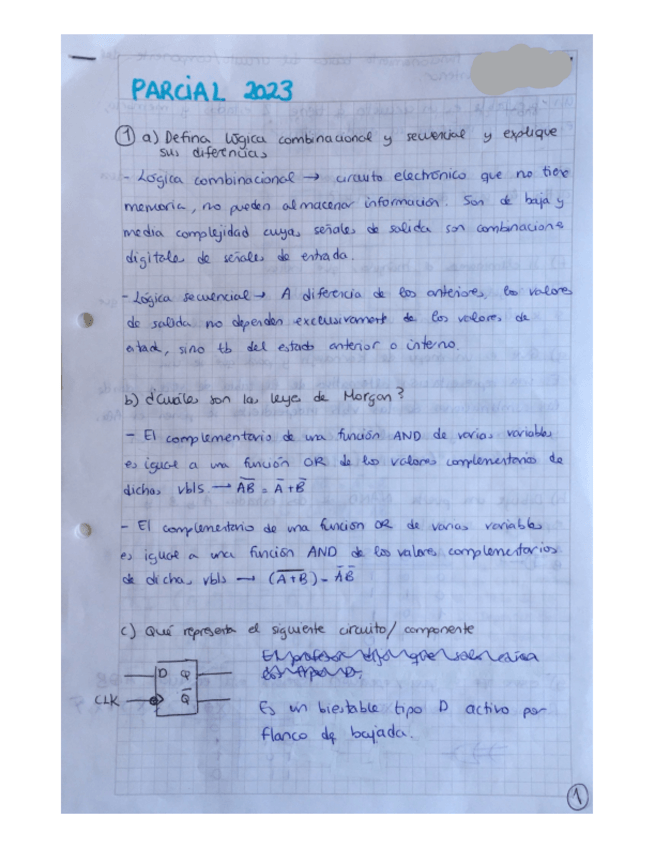 PARCIAL 2023
1 a) Defina lógica combinacional y secuencial y explique
sus diferencias
- Lógica combinacional → circuito electrónico que no tiene
memoria, no pueden almacenar información. Son de baja y
media complejidad cuyas señales de salida son combinaciones
digitales de señales de entrada.
- Lógica secuencial → A diferencia de los anteriores, los valores
de salida no dependen exclusivamente de los valores de
entrada, sino tb del estado anterior o interno.
b) ¿Cuáles son las leyes de Morgan?
- El complementario de una función AND de varias variables
es igual a una función OR de los valores complementarios de
dichas vbls. → A̅B̅ = A̅ + B̅
- El complementario de una función OR de varias variables
es igual a una función AND de los valores complementarios
de dichas vbls → (A+B)‾ = A̅ B̅
c) Qué representa el siguiente circuito/componente
D Q
CLK Q̅
Es un biestable tipo D activo por
flanco de bajada.
1